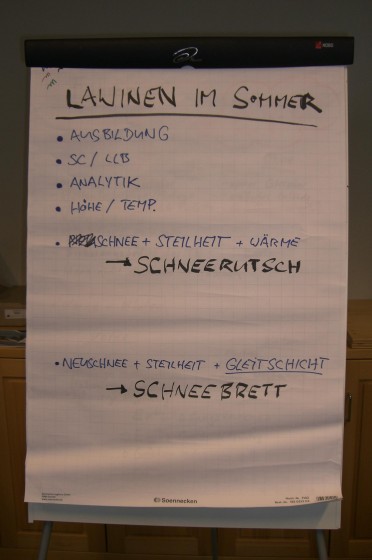 LAWINEN IM SOMMER
• AUSBILDUNG
• SC / LLB
• ANALYTIK
• HÖHE / TEMP.
• SCHNEE + STEILHEIT + WÄRME
→ SCHNEERUTSCH
• NEUSCHNEE + STEILHEIT + GLEITSCHICHT
→ SCHNEEBRETT
Soennecken